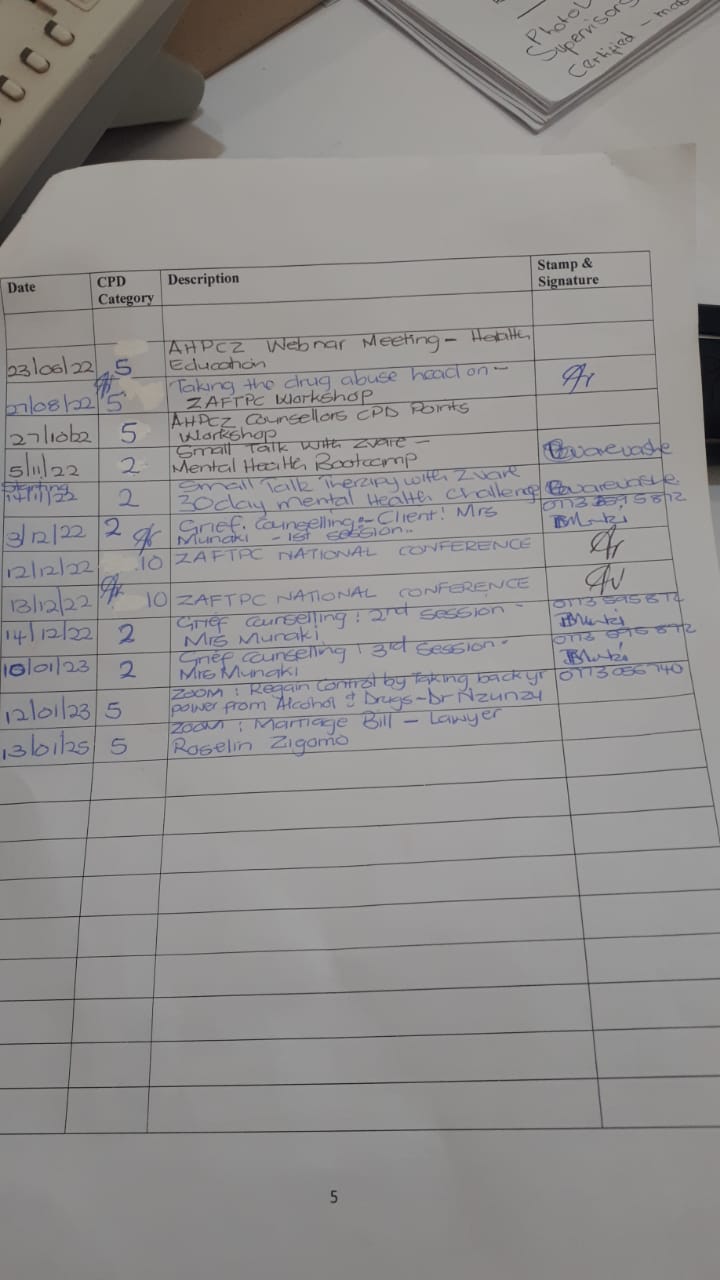 Photo
Supervisors
Certified - 
Date
CPD
Category
Description
Stamp &
Signature
23/06/22
5
AHPCZ Webnar Meeting - Health
Education
27/08/22
5
Taking the drug abuse head on -
ZAFTPC Workshop
27/10/22
5
AHPCZ Counsellors CPD Points
Workshop
5/11/22
2
Small Talk with Zvare -
Mental Health Bootcamp
Starting
14/11/22
2
Small Talk Therapy with Zvare
30day mental Health Challenge
3/12/22
2
Grief. Counselling :- Client! Mrs
Munaki - 1st session..
0773 895 872
12/12/22
10
ZAFTPC NATIONAL CONFERENCE
13/12/22
10
ZAFTPC NATIONAL CONFERENCE
14/12/22
2
Grief Counselling : 2nd session -
Mrs Munaki
0773 895 872
10/01/23
2
Grief Counselling : 3rd session -
Mrs Munaki
0773 895 872
12/01/23
5
ZOOM : Regain Control by Taking back yr
power from Alcohol & Drugs - Dr Nzunzu
0773 056 740
13/01/25
5
ZOOM : Marriage Bill - Lawyer
Roselin Zigomo
5